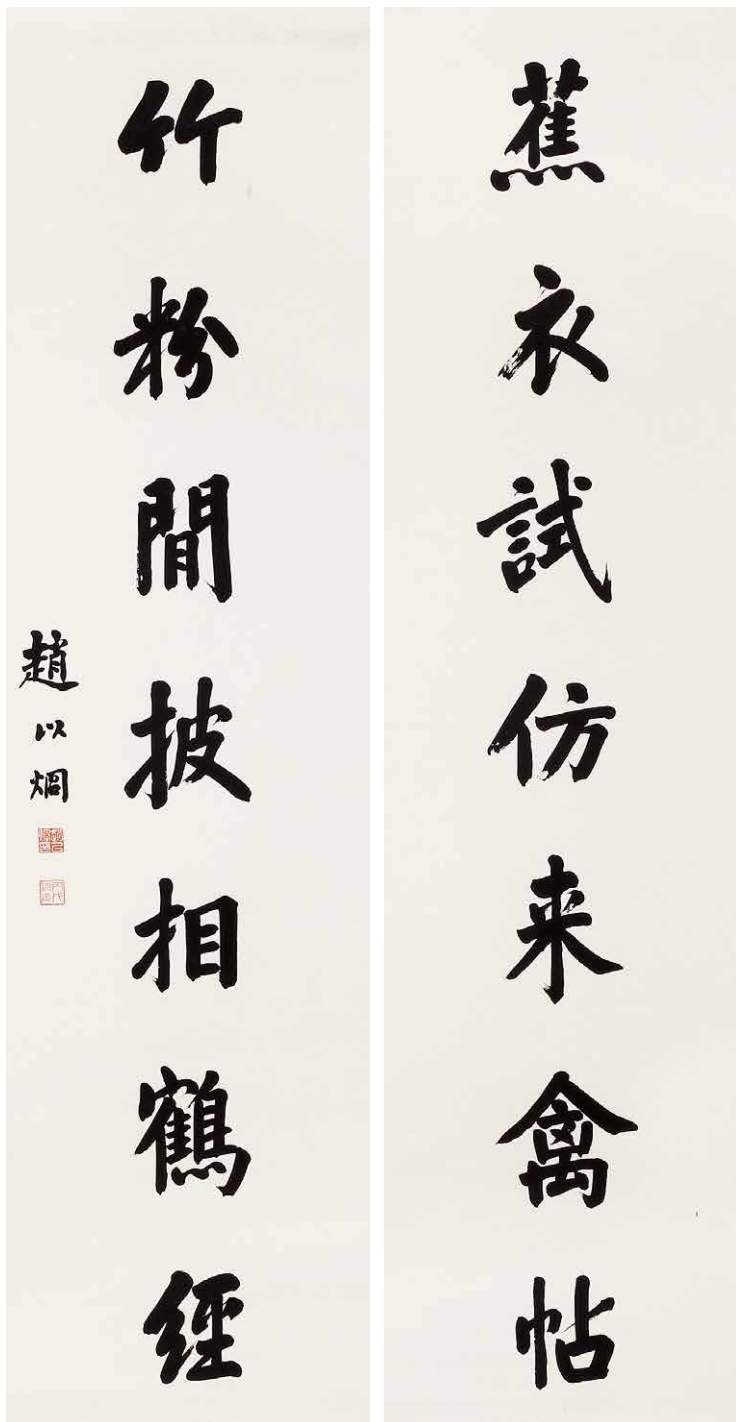 蕉衣試仿来禽帖
竹粉間披相鶴經
趙以烱